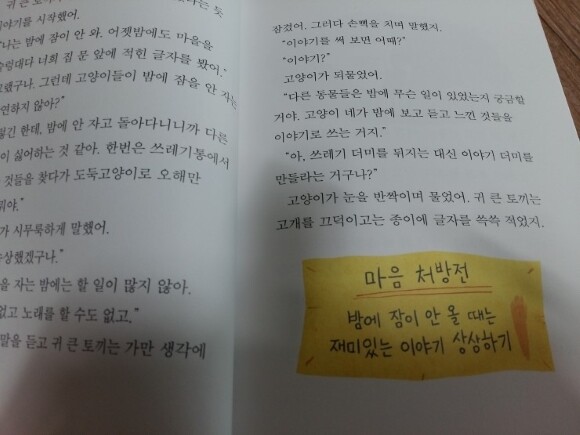 귀 큰 토끼
이야기를 시작했어.
"나는 밤에 잠이 안 와. 어젯밤에도 마을을
너희 집 문 앞에 적힌 글자를 봤어."
그런데 고양이들이 밤에 잠을 안 자는
당연하지 않아?"
한데, 밤에 안 자고 돌아다니니까 다른
싫어하는 것 같아. 한번은 쓰레기통에서
것들을 찾다가 도둑고양이로 오해만
시무룩하게 말했어.
자는 밤에는 할 일이 많지 않아.
없고 노래를 할 수도 없고."
말을 듣고 귀 큰 토끼는 가만 생각에
잠겼어. 그러다 손뼉을 치며 말했지.
"이야기를 써 보면 어때?"
"이야기?"
고양이가 되물었어.
"다른 동물들은 밤에 무슨 일이 있었는지 궁금할
거야. 고양이 네가 밤에 보고 듣고 느낀 것들을
이야기로 쓰는 거지."
"아, 쓰레기 더미를 뒤지는 대신 이야기 더미를
만들라는 거구나?"
고양이가 눈을 반짝이며 물었어. 귀 큰 토끼는
고개를 끄덕이고는 종이에 글자를 쓱쓱 적었지.
마음 처방전
밤에 잠이 안 올 때는
재미있는 이야기 상상하기